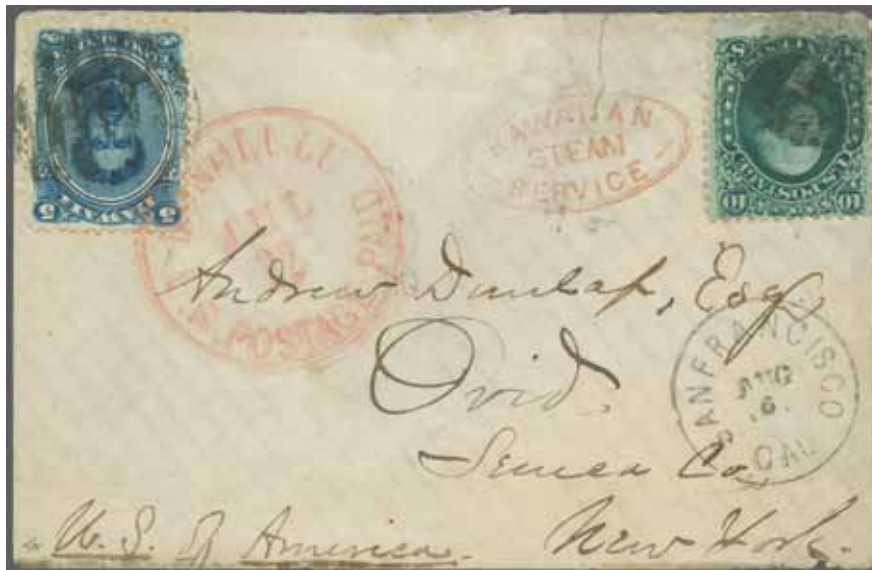 HONOLULU
U.S. POSTAGE PAID
HAWAIIAN
STEAM
SERVICE
10 U.S. POSTAGE 10
HAWAII
5 5
SAN FRANCISCO
AUG
6
CAL
Andrew Dunlap, Esq.
Ovid.
Seneca Co.
New York.
U. S. of America.